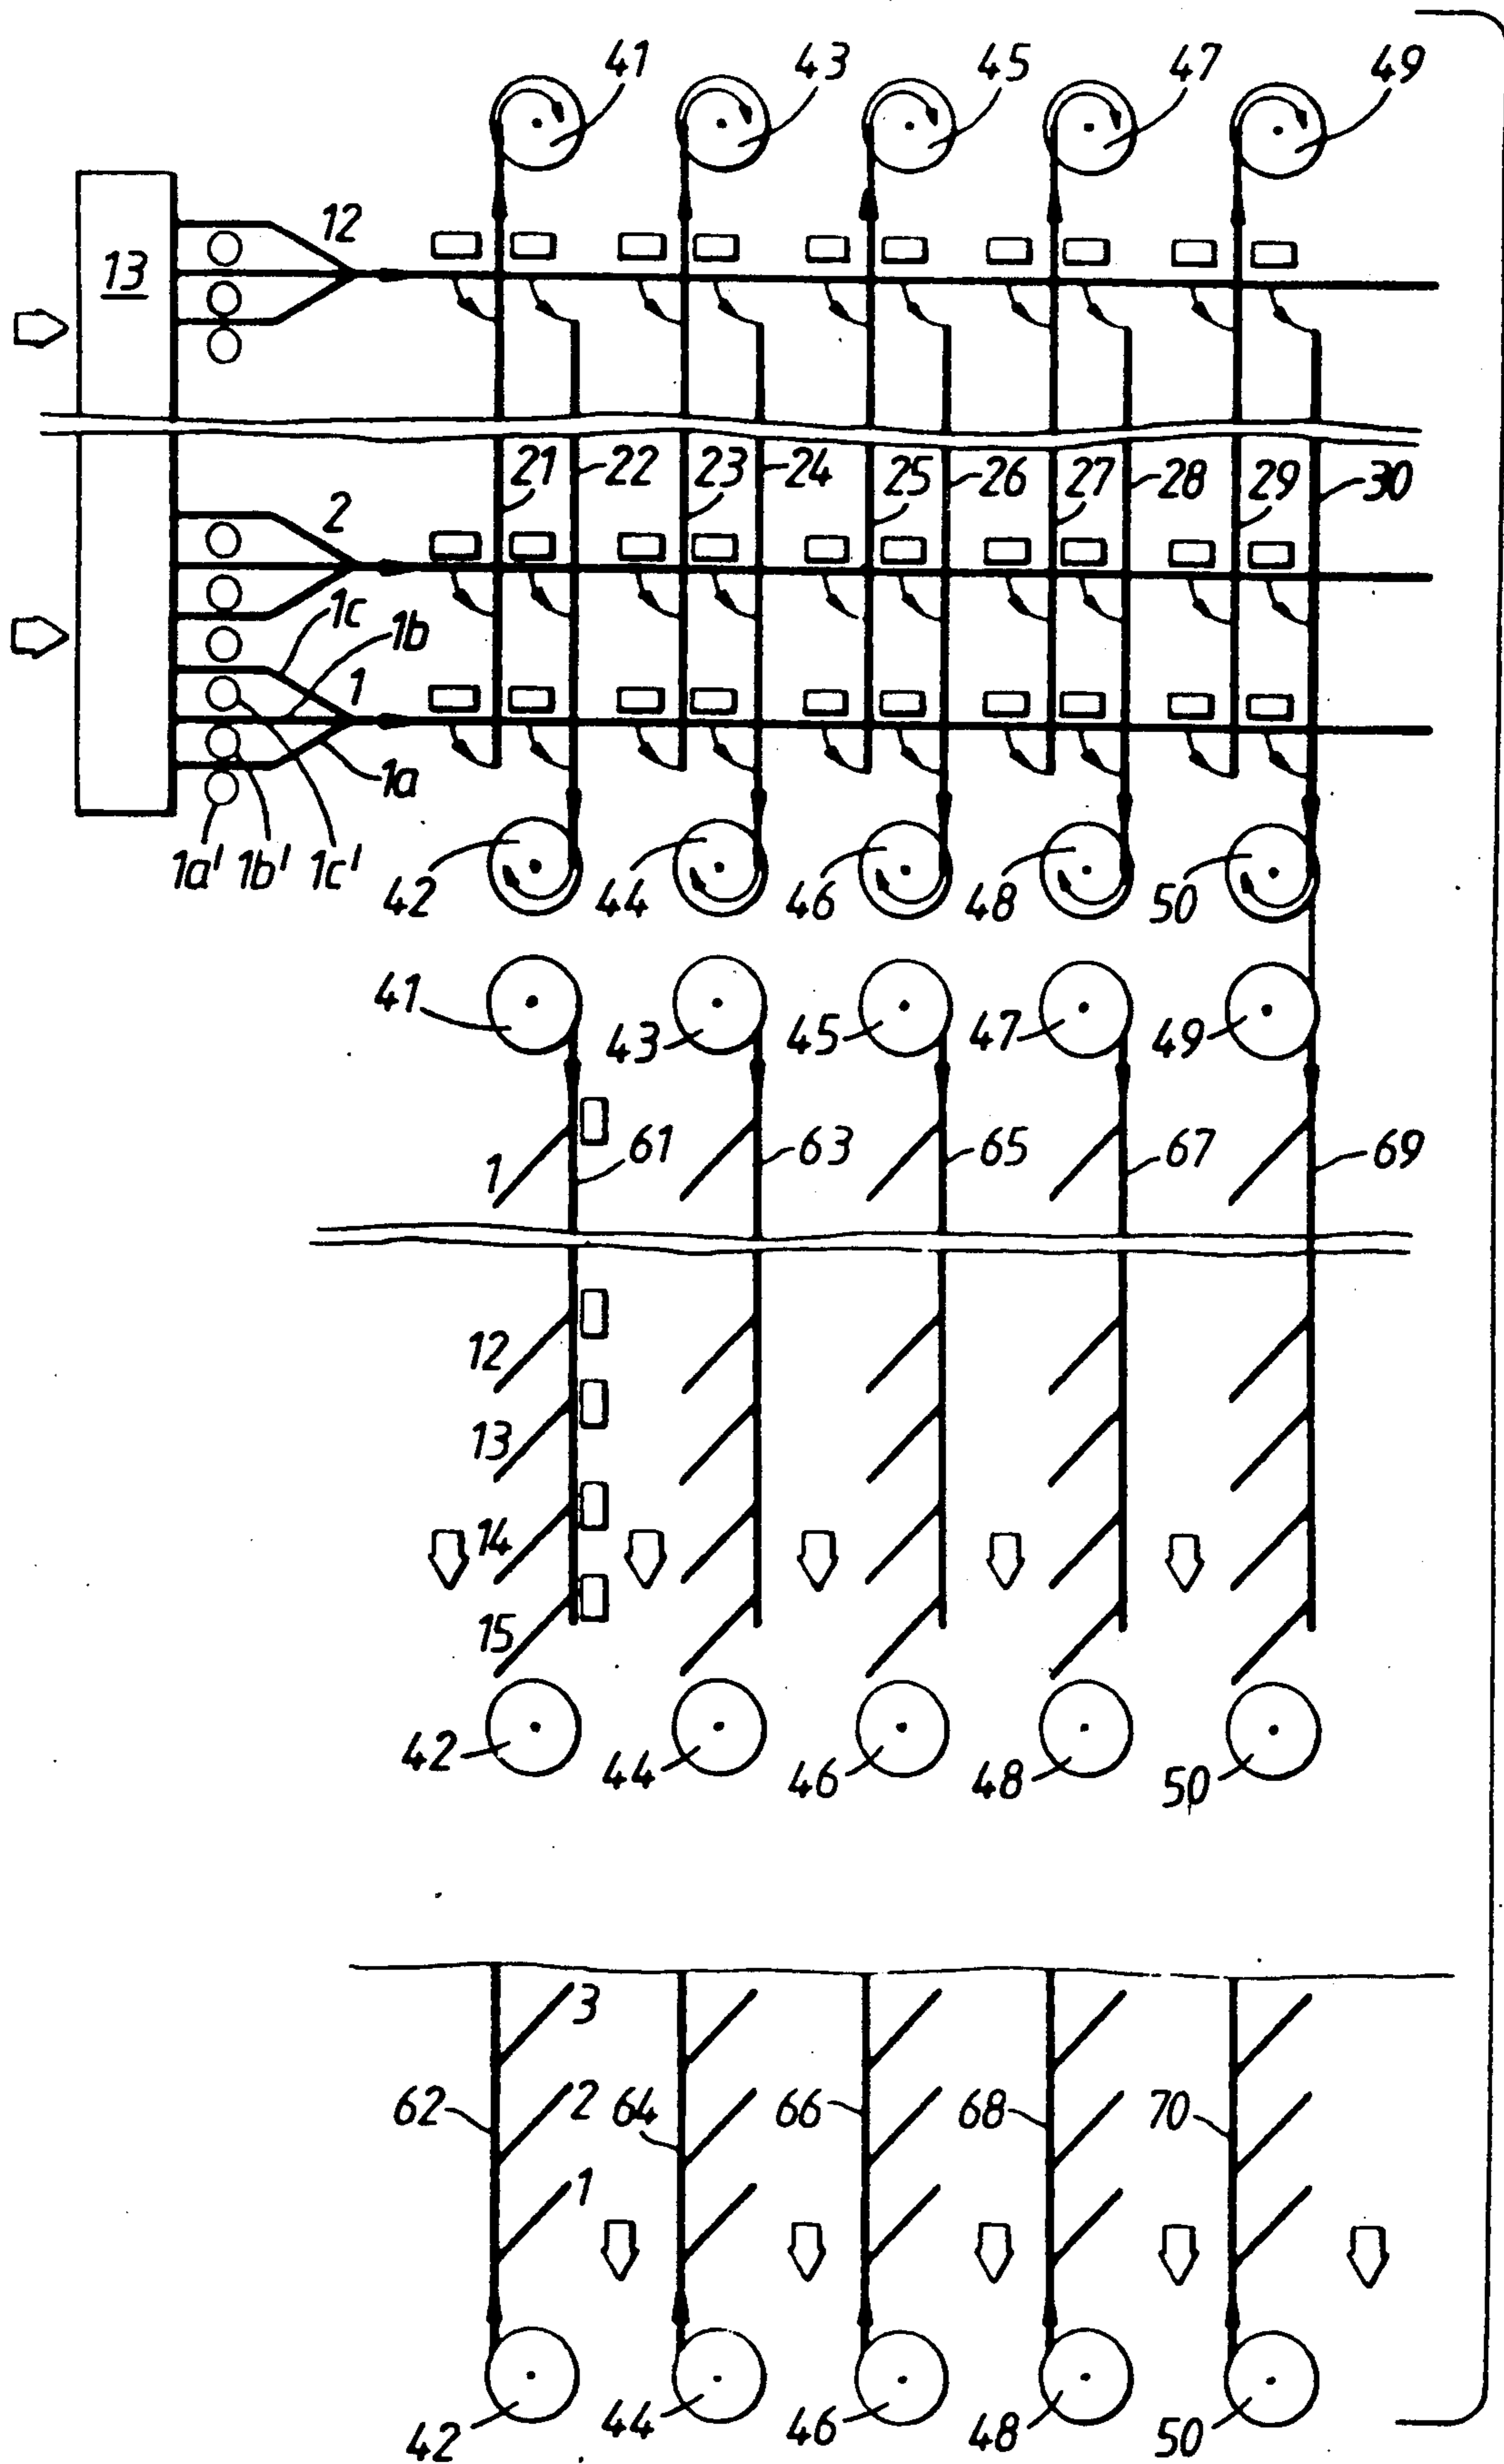 41 43 45 47 49
12
13
21 22 23 24 25 26 27 28 29 30
2
1c 1b
1
1a
1a' 1b' 1c' 42 44 46 48 50
41 43 45 47 49
1 61 63 65 67 69
12
13
14
15
42 44 46 48 50
3
62 2 64 66 68 70
1
42 44 46 48 50